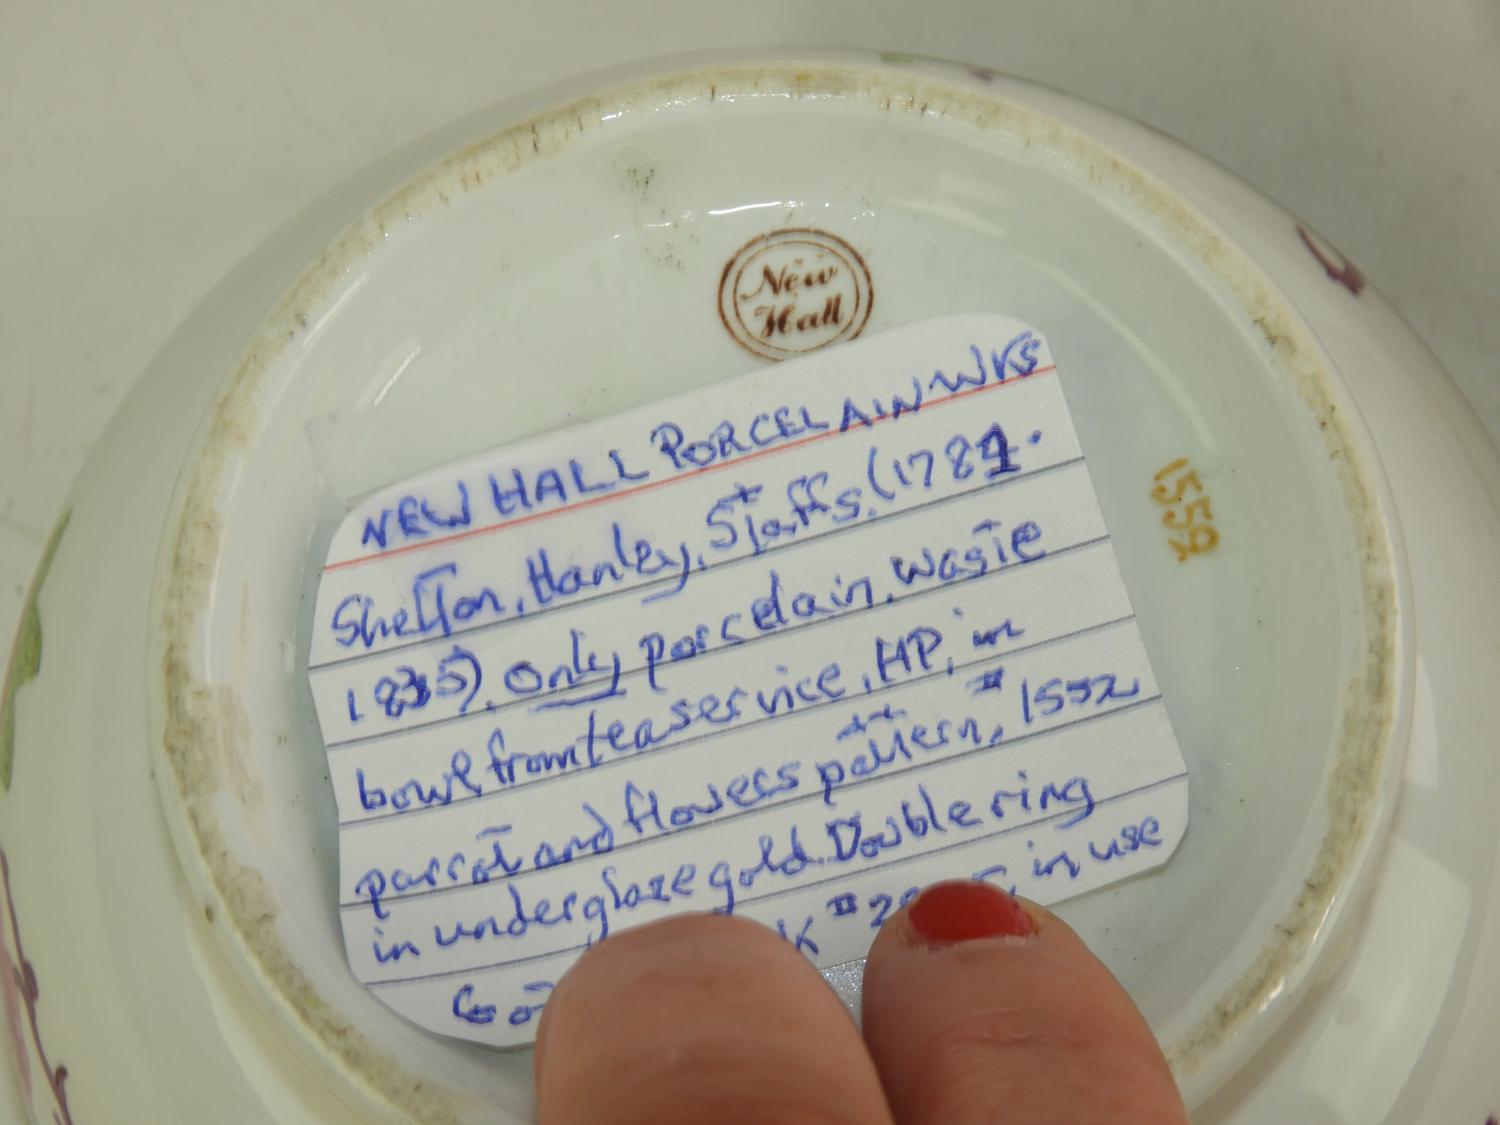 New
Hall
NEW HALL PORCELAIN WKS
Shelton, Hanley, Staffs. (1781.
1835). Only porcelain. waste
bowl from tea service, HP, in
parrot and flowers pattern, # 1552
in underglaze gold. Double ring
# in use
1552